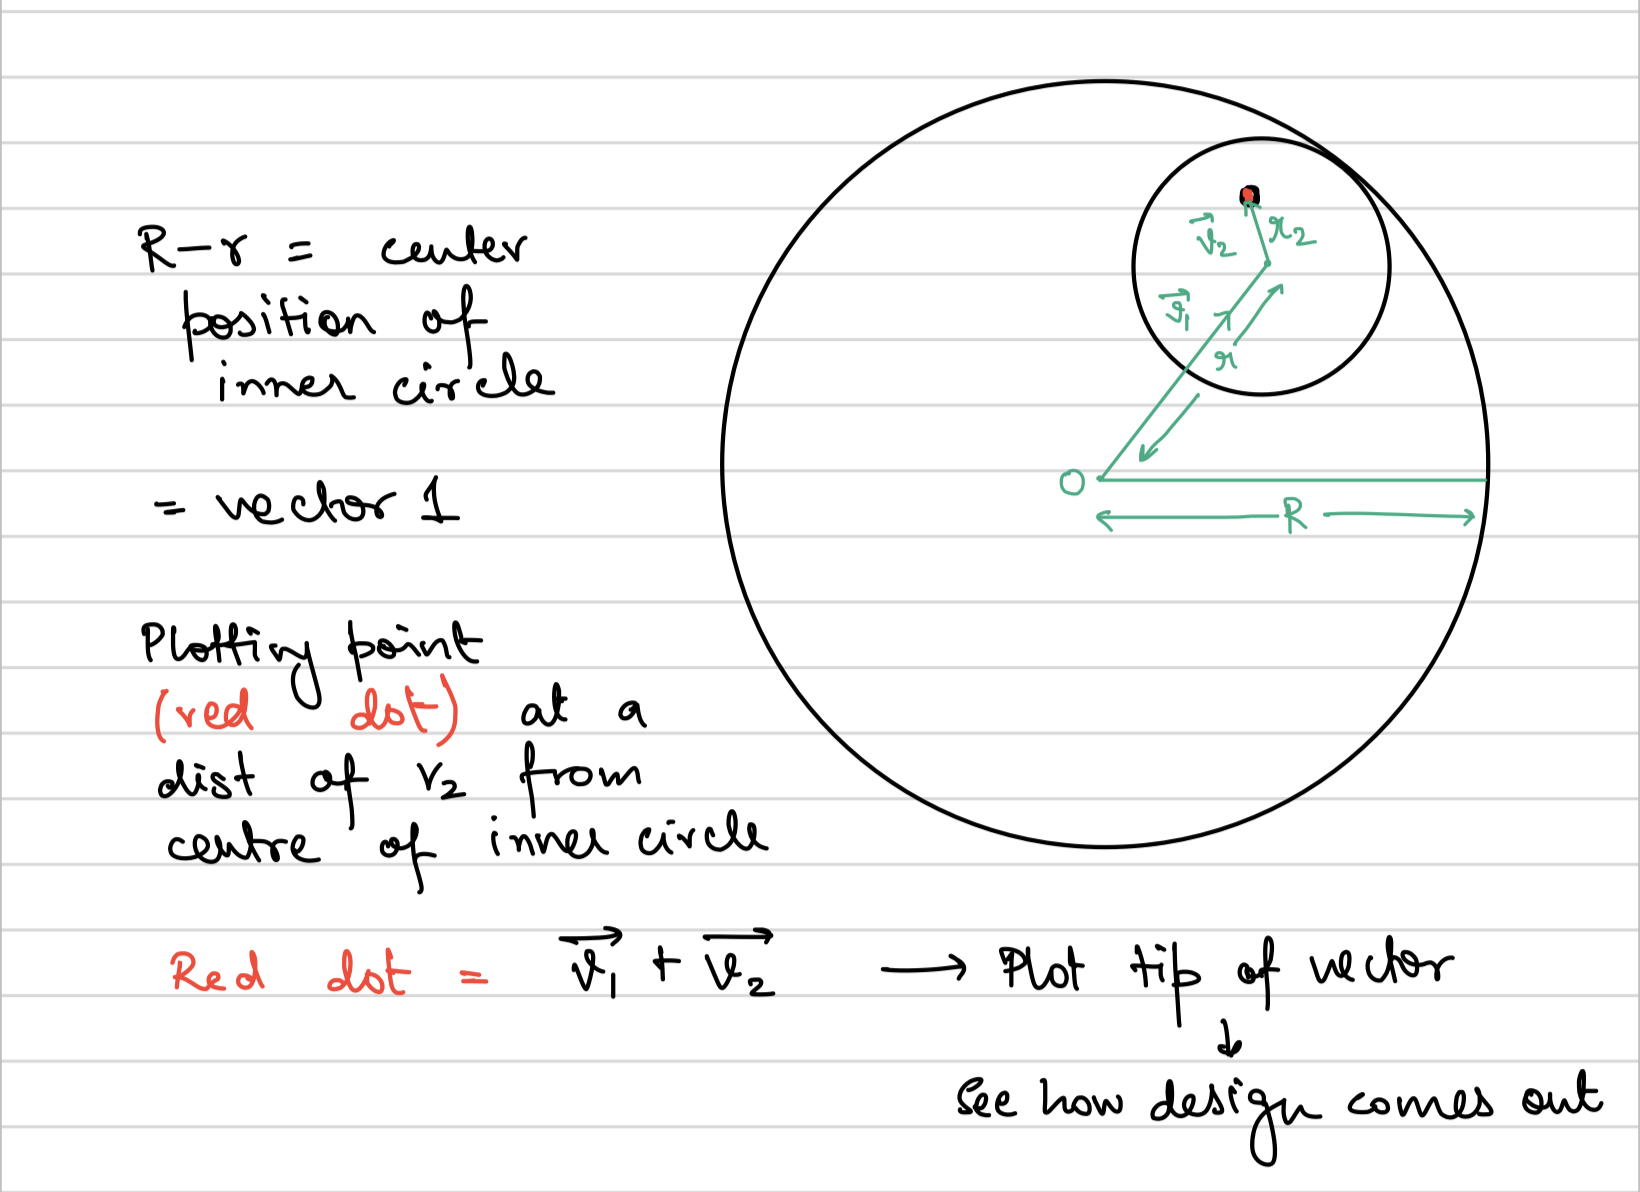 R-r = center
position of
inner circle
= vector 1
Plotting point
(red dot) at a
dist of r₂ from
centre of inner circle
Red dot = v⃗₁ + v⃗₂ → Plot tip of vector
↓
See how design comes out
v⃗₂ r₂
v⃗₁
r
O
R